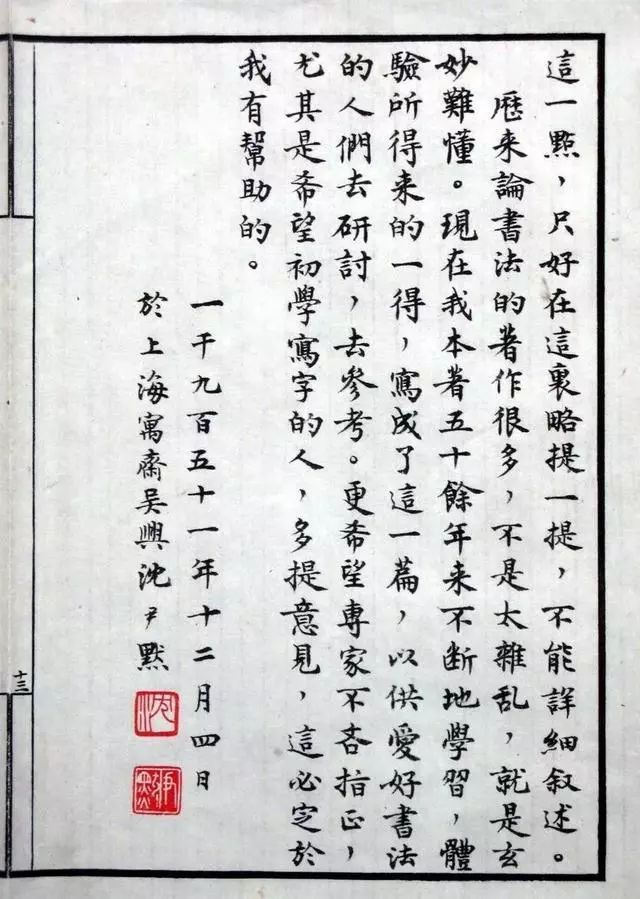 這一點，只好在這裏略提一提，不能詳細叙述。
歷来論書法的著作很多，不是太雜乱，就是玄
妙難懂。現在我本著五十餘年来不断地學習，體
驗所得来的一得，寫成了這一篇，以供愛好書法
的人們去研討，去參考。更希望專家不吝指正，
尤其是希望初學寫字的人，多提意見，這必定於
我有幫助的。
一千九百五十一年十二月四日
於上海寓齋吴興沈尹默
沈
尹默
十三